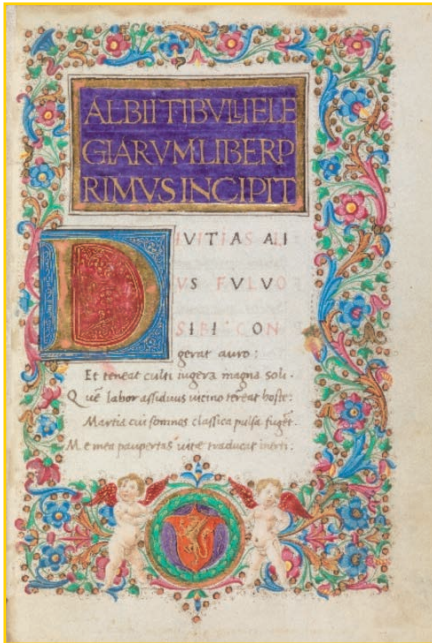 ALBII TIBVLLI ELE
GIARVM LIBER P
RIMVS INCIPIT
DIVITIAS ALI
VS FVLVO
SIBI CON
gerat auro:
Et teneat culti iugera magna soli.
Que labor assiduus uicino terreat hoste:
Martia cui somnos classica pulsa fuget.
Me mea paupertas uitae traducat inerti.